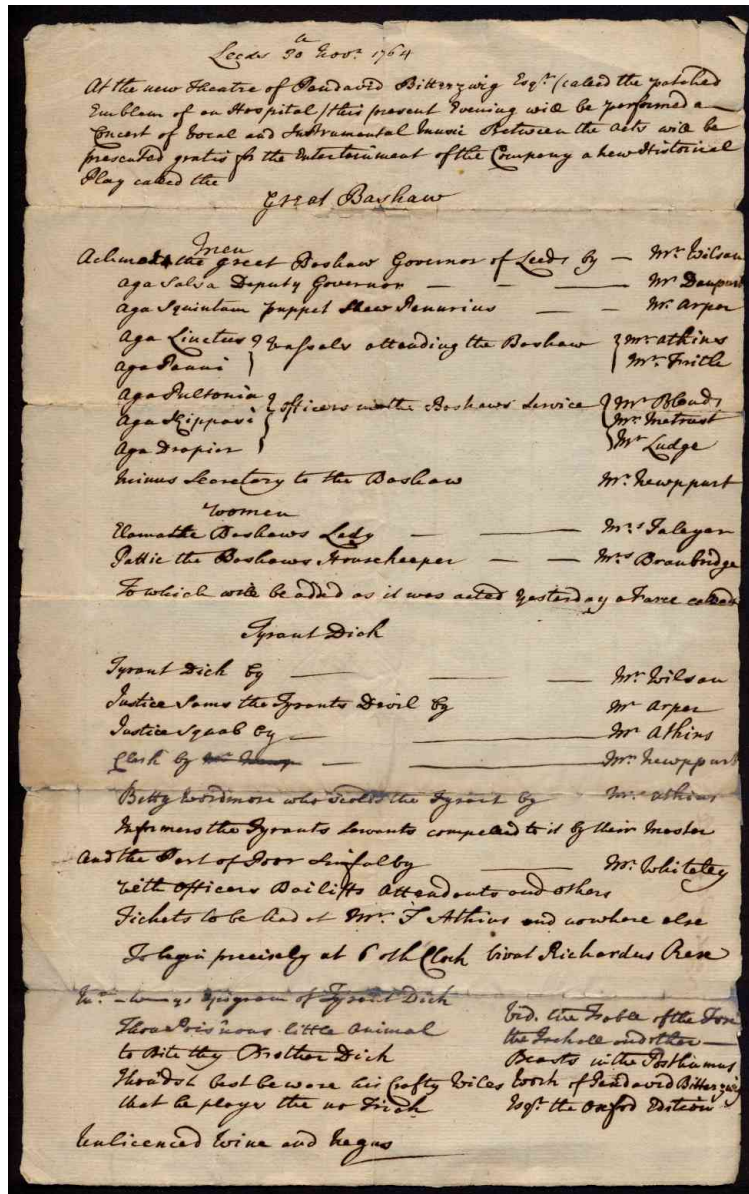 Leeds 30th Novr. 1764
At the new Theatre of Pendavid Bitterzwig Esqr. (called the patched
Emblem of an Hospital) this present Evening will be performed a
Concert of Vocal and Instrumental Music Between the acts will be
presented gratis for the Entertainment of the Company a new Historical
Play called the
Great Bashaw
Men
the Great Bashaw Governor of Leeds by — Mr. Wilson
Aga Salva Deputy Governor — — — Mr
Aga Squintum puppet Shew Penurius — — Mr. Arper
Aga Linctus } Vassals attending the Bashaw } Mr. Atkins
Aga Panni } Mr. Fritle
Aga Pultonia } officers in the Bashaws Service } Mr Blouds
Aga Skippasi } Mr. Metrust
Aga Drapier } Mr Ludge
Minus Secretary to the Bashaw Mr. Newppurt
Women
the Bashaws Lady — — Mrs
Pattie the Bashaws Housekeeper — — Mrs Braubridge
To which will be added as it was acted yesterday a Farce called
Tyrant Dick
Tyrant Dick by — — — Mr. Wilson
Justice Sams the Tyrants Devil by Mr Arper
Justice Squab by — — Mr Atkins
Clerk by — — Mr. Newppurt
Betty Wordmore who scolds the Tyrant by Mrs. Atkins
Informers the Tyrants Servants compelled to it by their Master
And the Part of Poor Sinful by — Mr. Whiteley
with Officers Bailiffs Attendants and others
Tickets to be had at Mr. T Atkins and nowhere else
To begin precisely at 6 oth Clock Vivat Richardus Rex
Epigram of Tyrant Dick
Thou Pois'nous little Animal
to Bite thy Brother Dick
Thoudst best beware his Crafty Wiles
that he plays the no Trick
Vid. the Fable of the Fox
the Jackall and other —
Beasts in the Posthumus
Work of Pendavid Bitterzwig
Esqr. the Oxford Edition
Unlicenced Wine and Negus